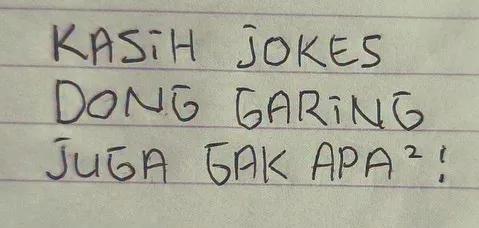 KASiH JOKES
DONG GARiNG
JUGA GAK APA²!